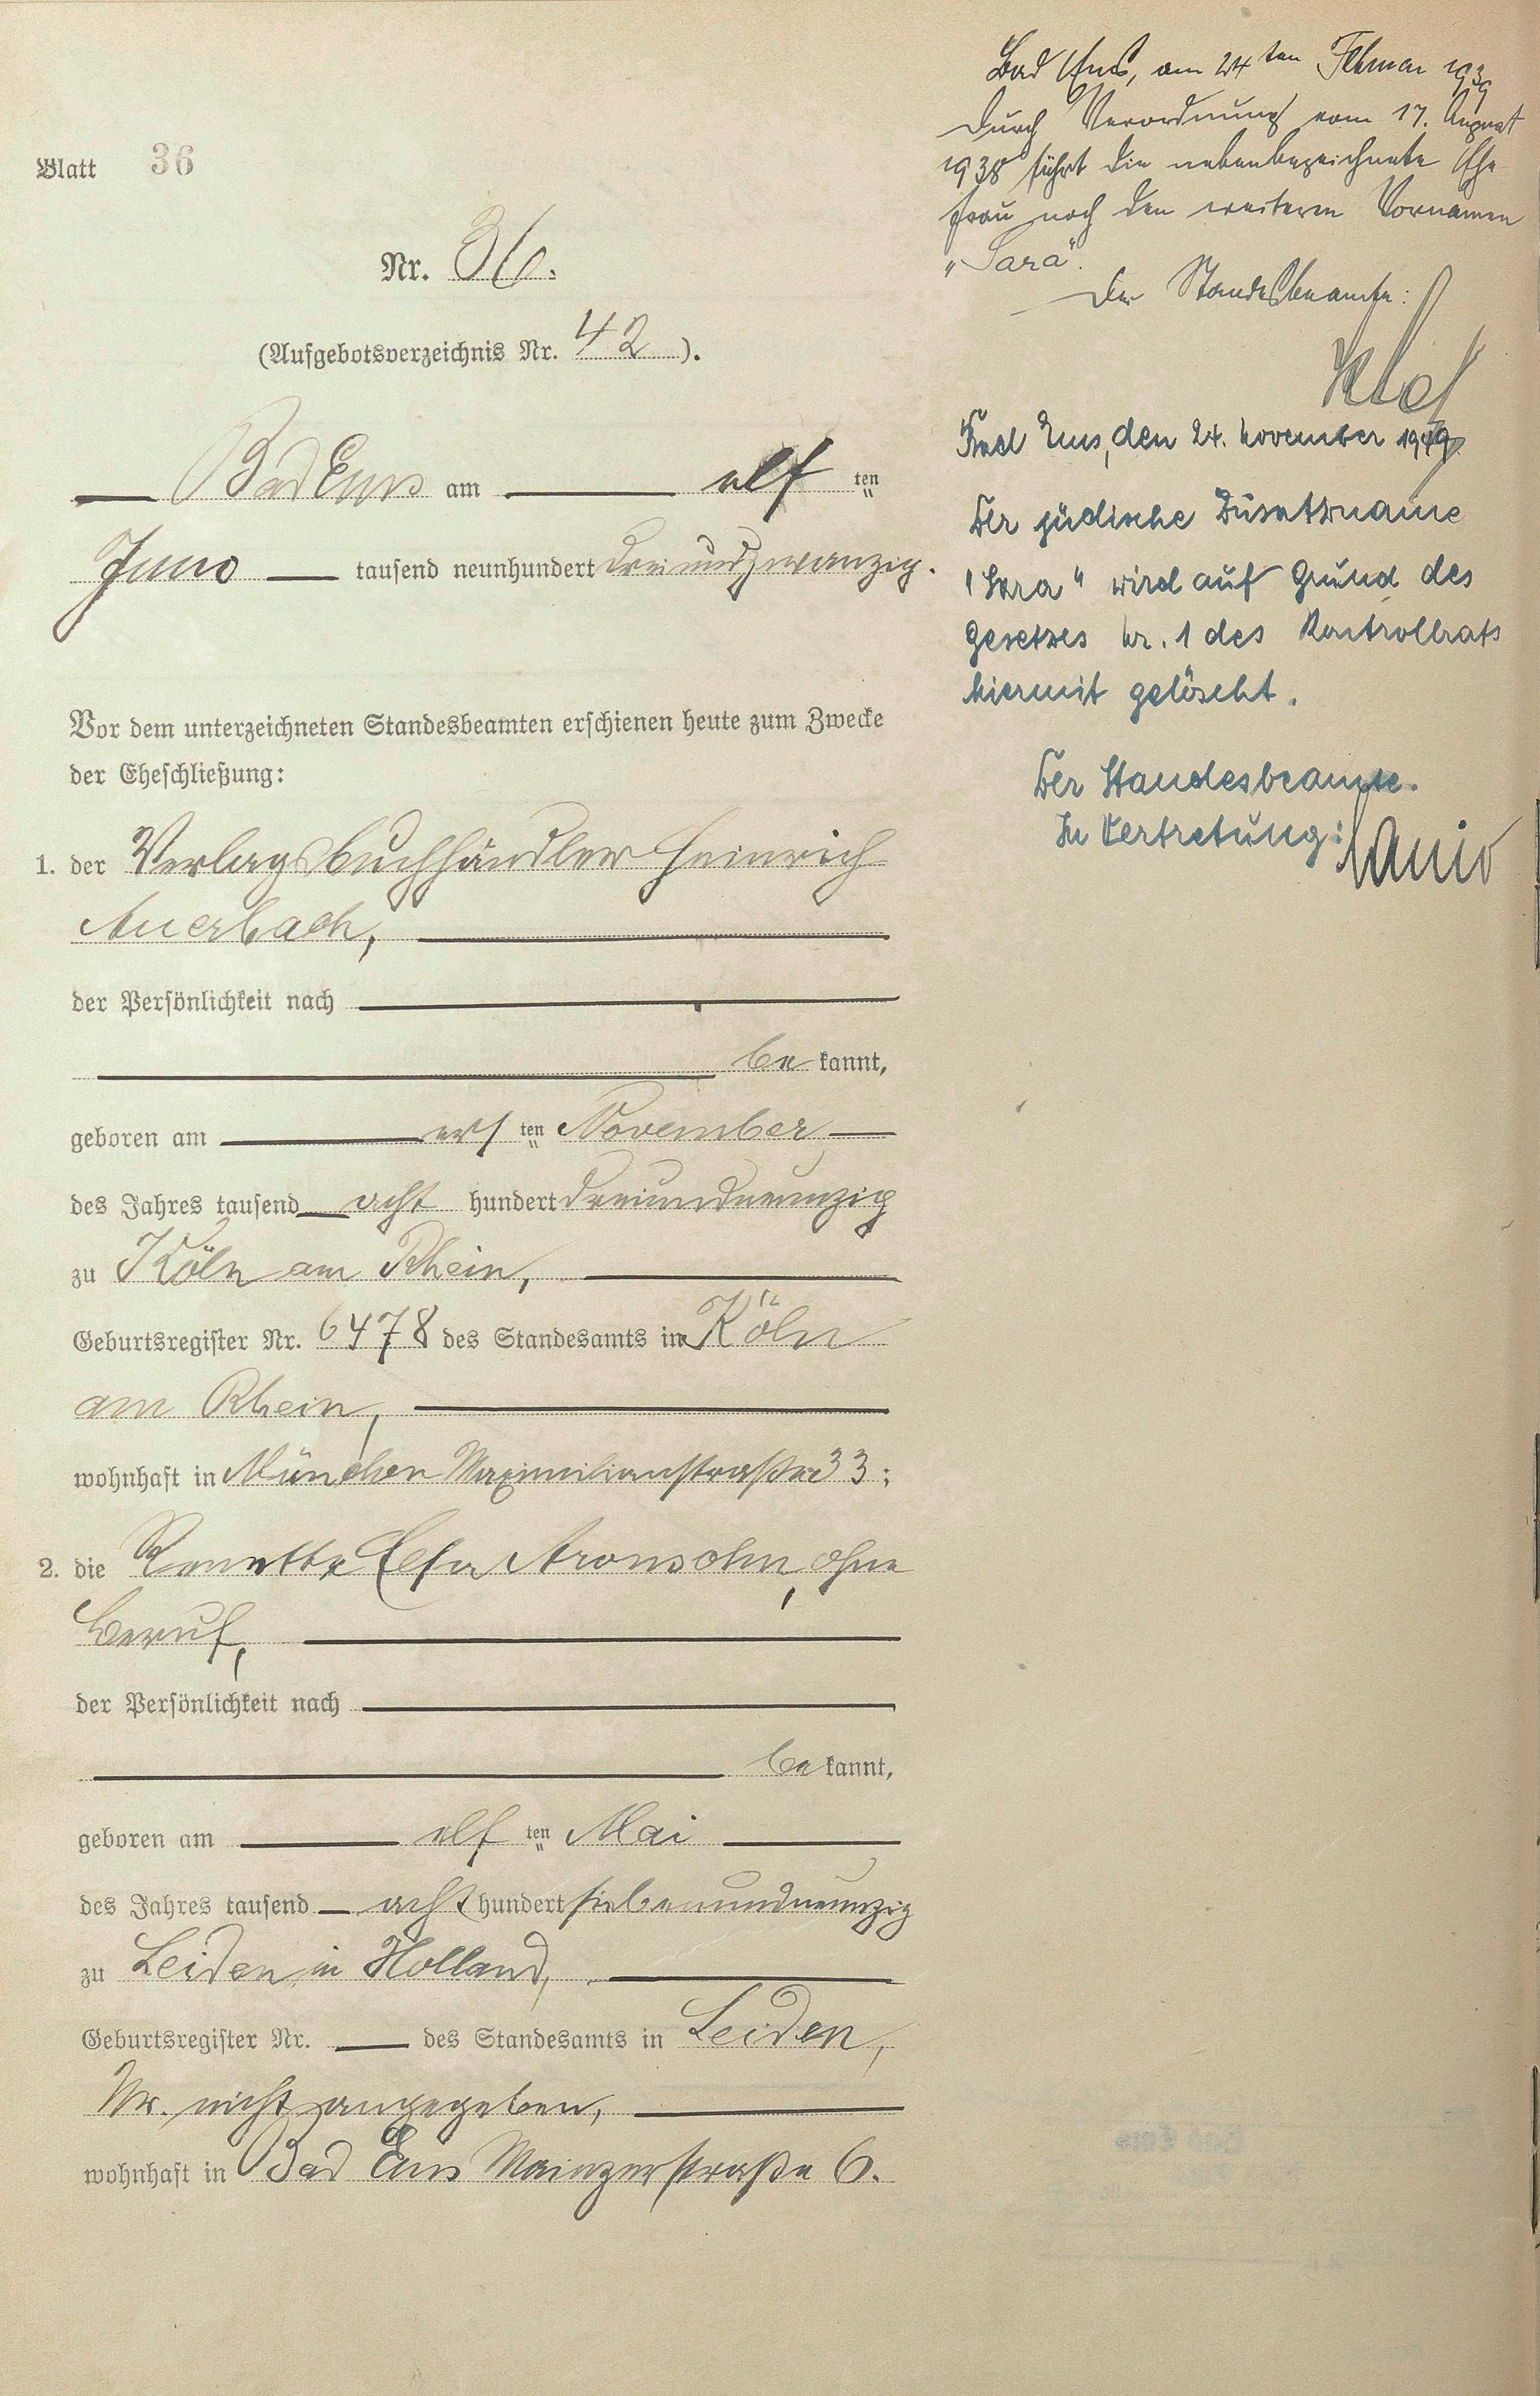 Blatt 36
Nr. 36.
(Aufgebotsverzeichnis Nr. 42).
Bad Ems am elf ten
Juno tausend neunhundert dreiundzwanzig.
Vor dem unterzeichneten Standesbeamten erschienen heute zum Zwecke
der Eheschließung:
1. der Verlagsbuchhändler Heinrich
Auerbach,
der Persönlichkeit nach
be kannt,
geboren am ers ten November
des Jahres tausend acht hundert dreiundneunzig
zu Köln am Rhein,
Geburtsregister Nr. 6478 des Standesamts in Köln
am Rhein,
wohnhaft in München Maximilianstraße 33;
2. die Aronsohn, ohne
Beruf,
der Persönlichkeit nach
be kannt,
geboren am elf ten Mai
des Jahres tausend acht hundert siebenundneunzig
zu Leiden in Holland,
Geburtsregister Nr. des Standesamts in Leiden,
Nr. nicht angegeben,
wohnhaft in Bad Ems Mainzerstraße 6.
Bad Ems, am 24ten Februar 1939
Durch Verordnung vom 17. August
1938 führt die nebenbezeichnete Ehe
frau noch den weiteren Vornamen
„Sara".
Der Standesbeamte:
Bad Ems, den 24. November 1949
Der jüdische Zusatzname
"Sara" wird auf Grund des
Gesetzes Nr. 1 des Kontrollrats
hiermit gelöscht.
Der Standesbeamte.
In Vertretung: